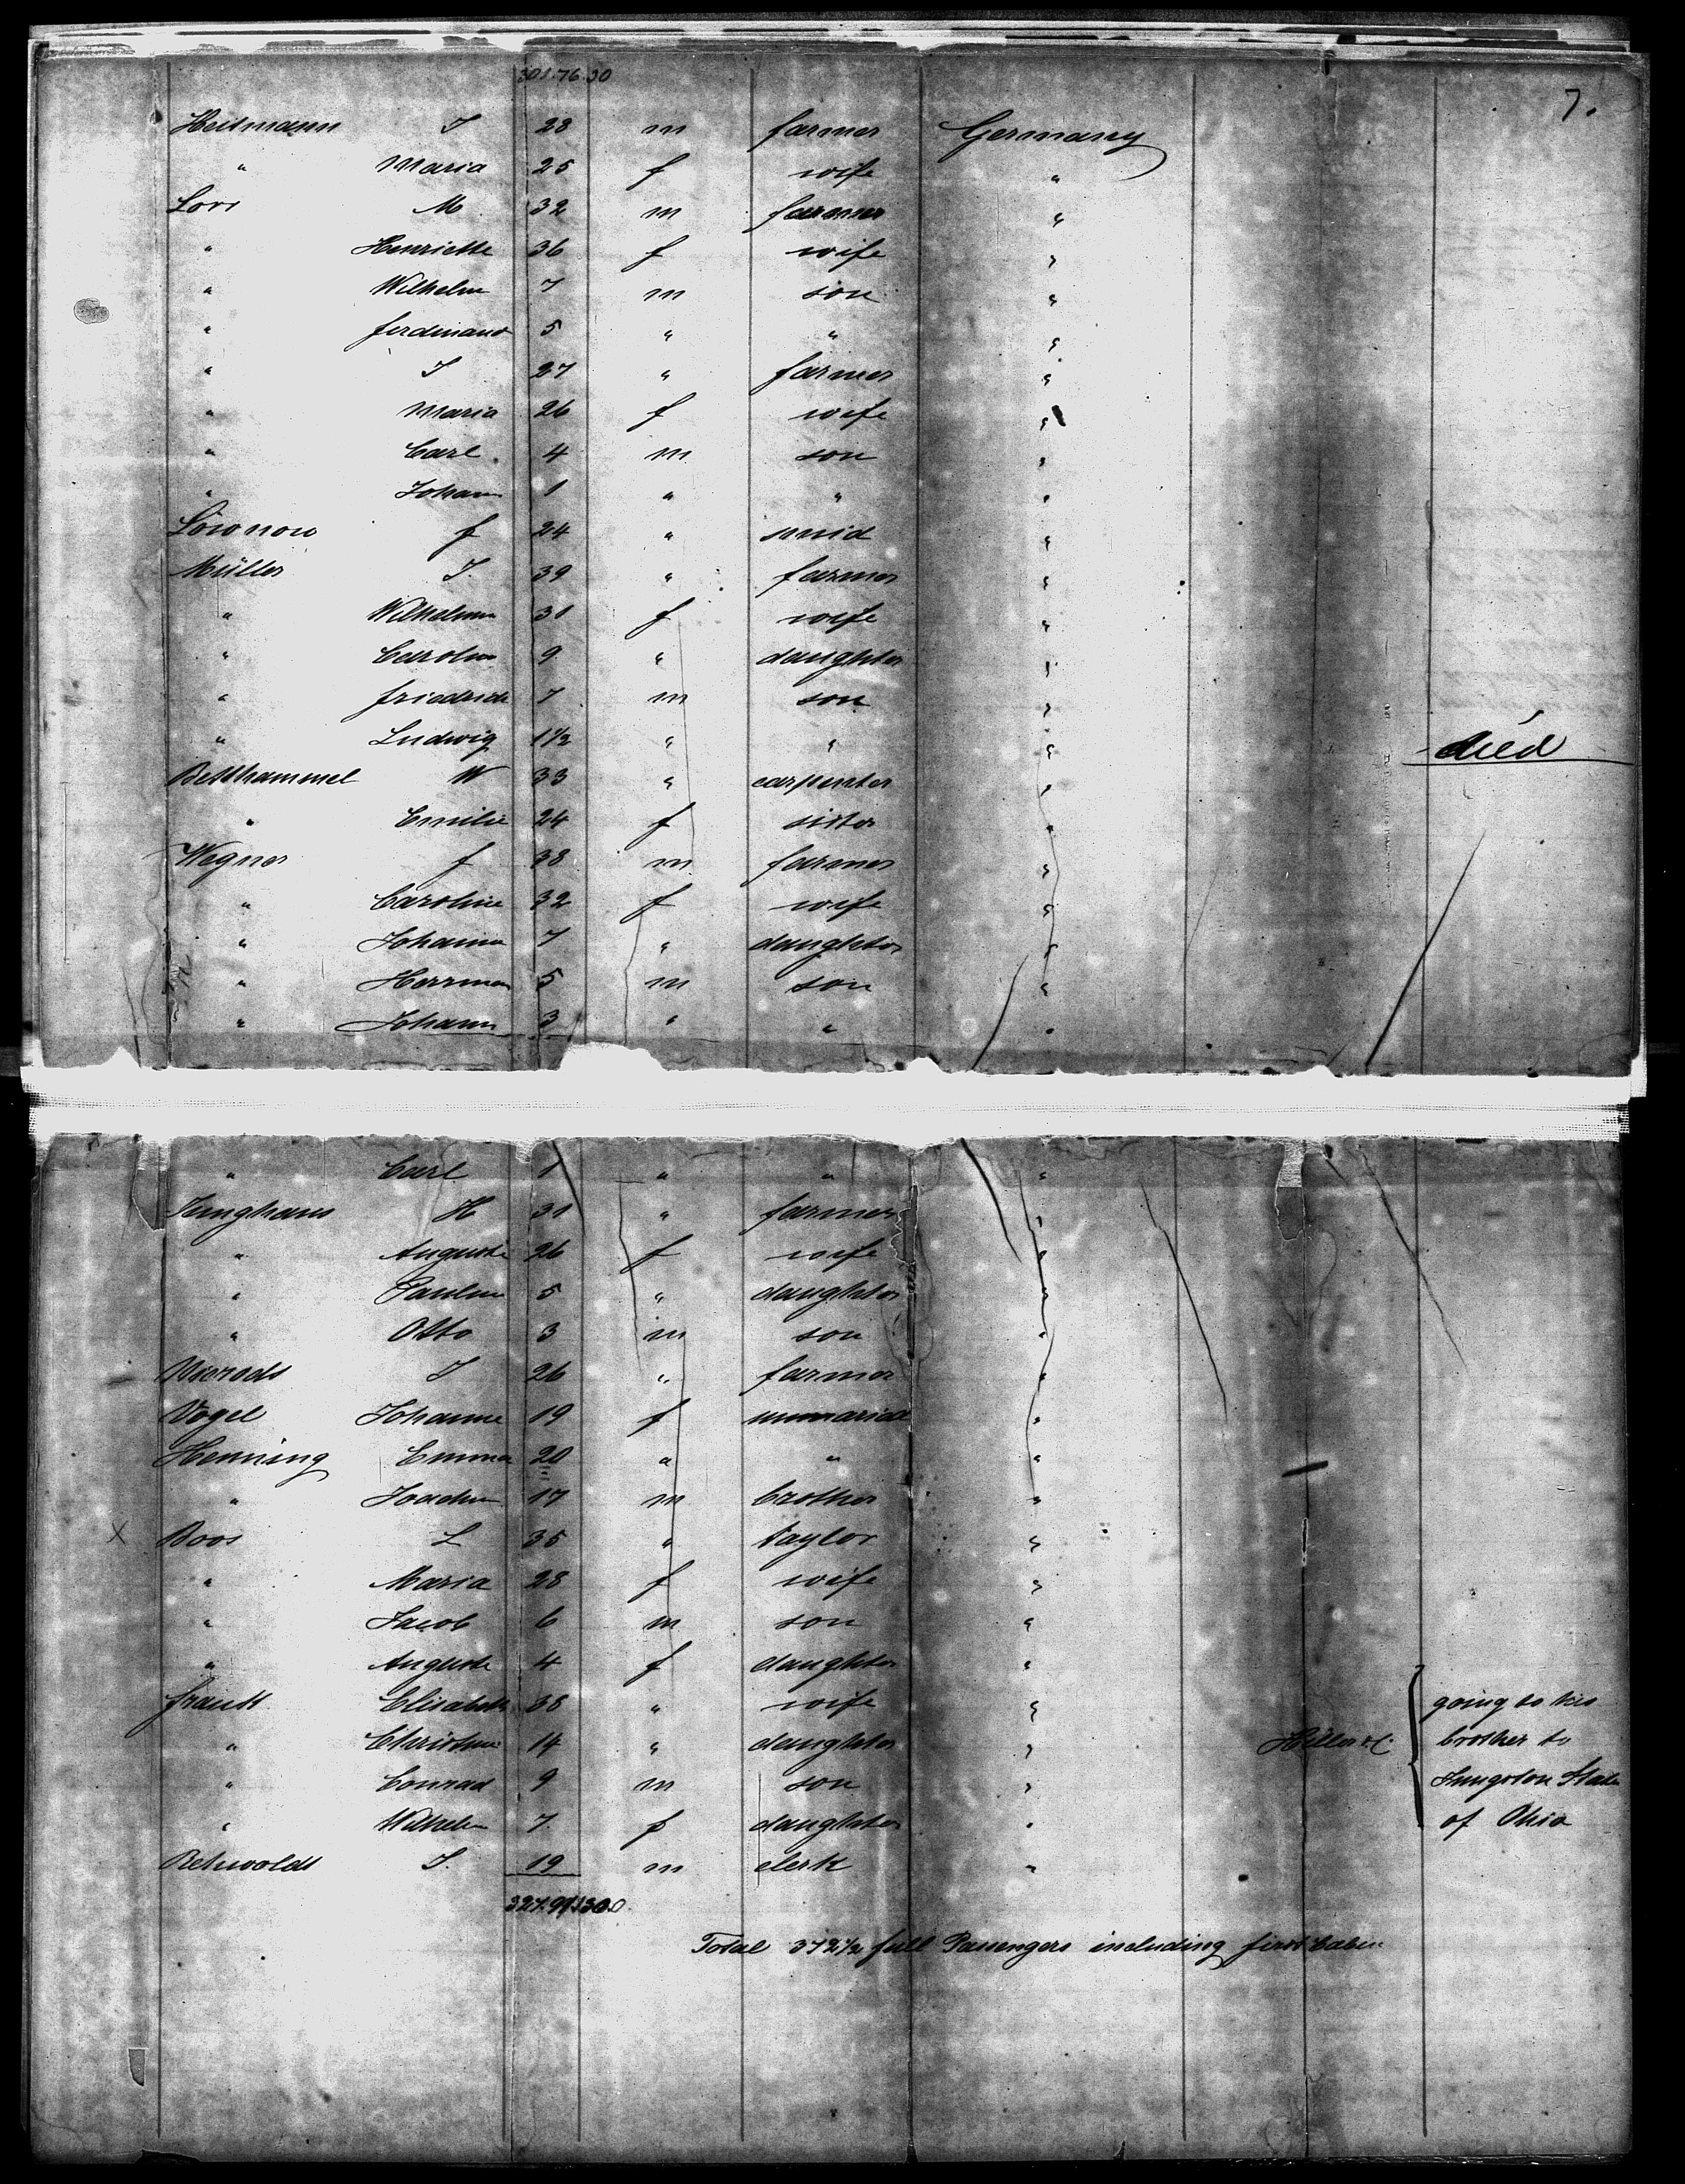 301.76.30
7.
Heitmann J 28 m farmer Germany
" Maria 25 f wife "
Lors M 32 m farmer "
" Henriette 36 f wife "
" Wilhelm 7 m son "
" Ferdinand 5 " " "
" J 27 " farmer "
" Maria 26 f wife "
" Carl 4 m son "
" Johann 1 " " "
Löwnow F 24 " smid "
Müller J. 39 " farmer "
" Wilhelmine 31 f wife "
" Carolin 9 " daughter "
" Friedrich 7 m son "
" Ludwig 1 1/2 " " " died
Betthammel W 33 " carpenter "
" Emilie 24 f sister "
Wegner F 38 m farmer "
" Caroline 32 f wife "
" Johanna 7 " daughter "
" Herrman 5 m son "
" Johann 3 " " "
" Carl 1 " " "
Junghans H 31 " farmer "
" Auguste 26 f wife "
" Pauline 5 " daughter "
" Otto 3 m son "
J 26 " farmer "
Vogel Johanne 19 f unmaried "
Henning Emma 20 " " "
" Joachim 17 m brother "
X Boos L 35 " taylor "
" Maria 28 f wife "
" Jacob 6 m son "
" Auguste 4 f daughter "
Frantt Elisabeth 38 " wife " going to his
" Christine 14 " daughter " brother to
" Conrad 9 m son " State
" Wilhelm 7. f daughter " of Ohio
Rehwoldt J. 19 m clerk "
Total 372 1/2 full Passengers including first Cabin